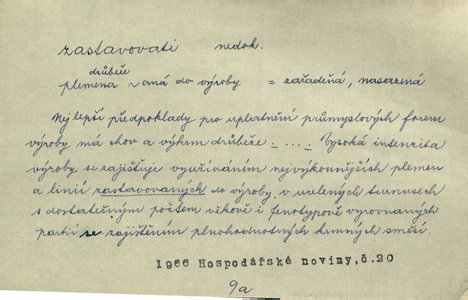 zastavovati nedok.
drůbeže
plemena z aná do výroby = zařaděná, nasazená
Nejlepší předpoklady pro uplatnění průmyslových forem
výroby má chov a výkrm drůbeže - ... - Vysoká intenzita
výroby se zajišťuje využíváním nejvýkonnějších plemen
a linií zastavovaných do výroby v ucelených turnusech
s dostatečným počtem věkově i fenotypově vyrovnaných
partií se zajištěním plnohodnotných krmných směsí.
1966 Hospodářské noviny,č.20
9a